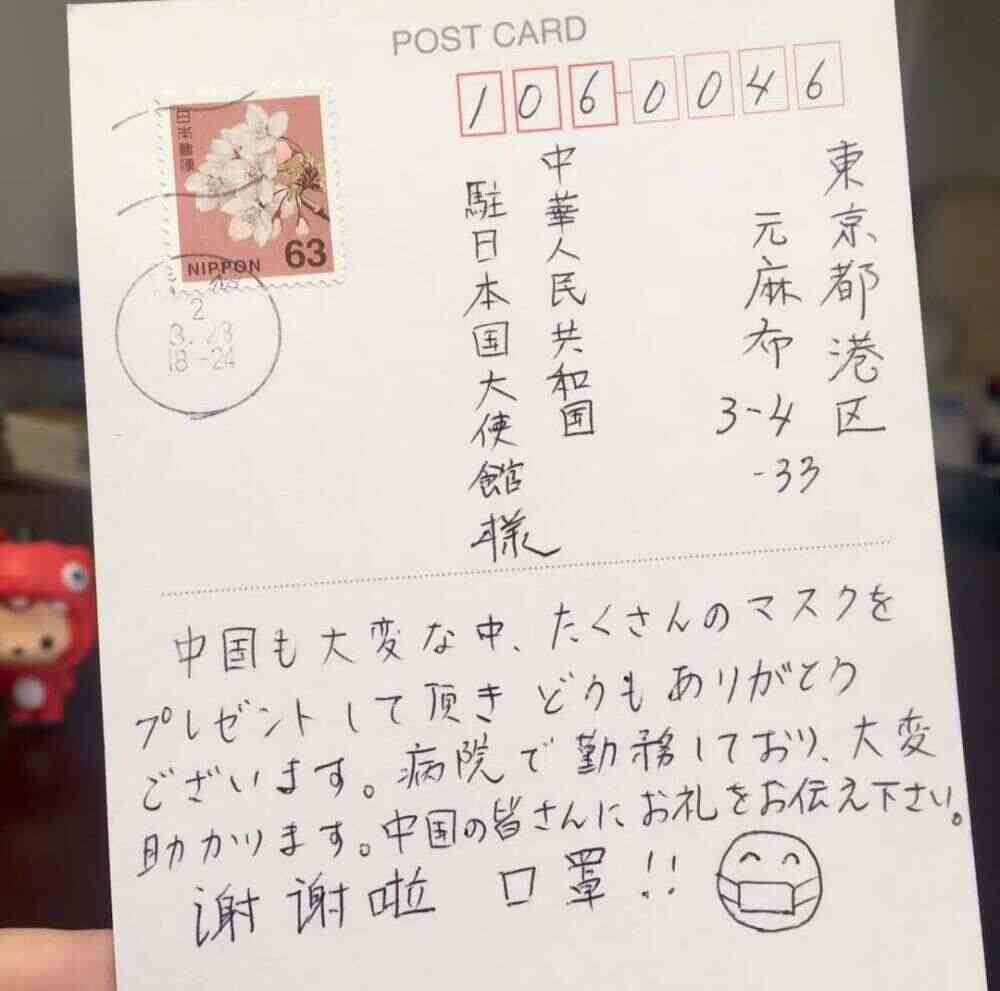 POST CARD
106-0046
日本郵便
NIPPON 63
2
3.23
18-24
東京都港区
元麻布
3-4
-33
中華人民共和国
駐日本国大使館様
中国も大変な中、たくさんのマスクを
プレゼントして頂きどうもありがとう
ございます。病院で勤務しており、大変
助かります。中国の皆さんにお礼をお伝え下さい。
谢谢啦 口罩!!